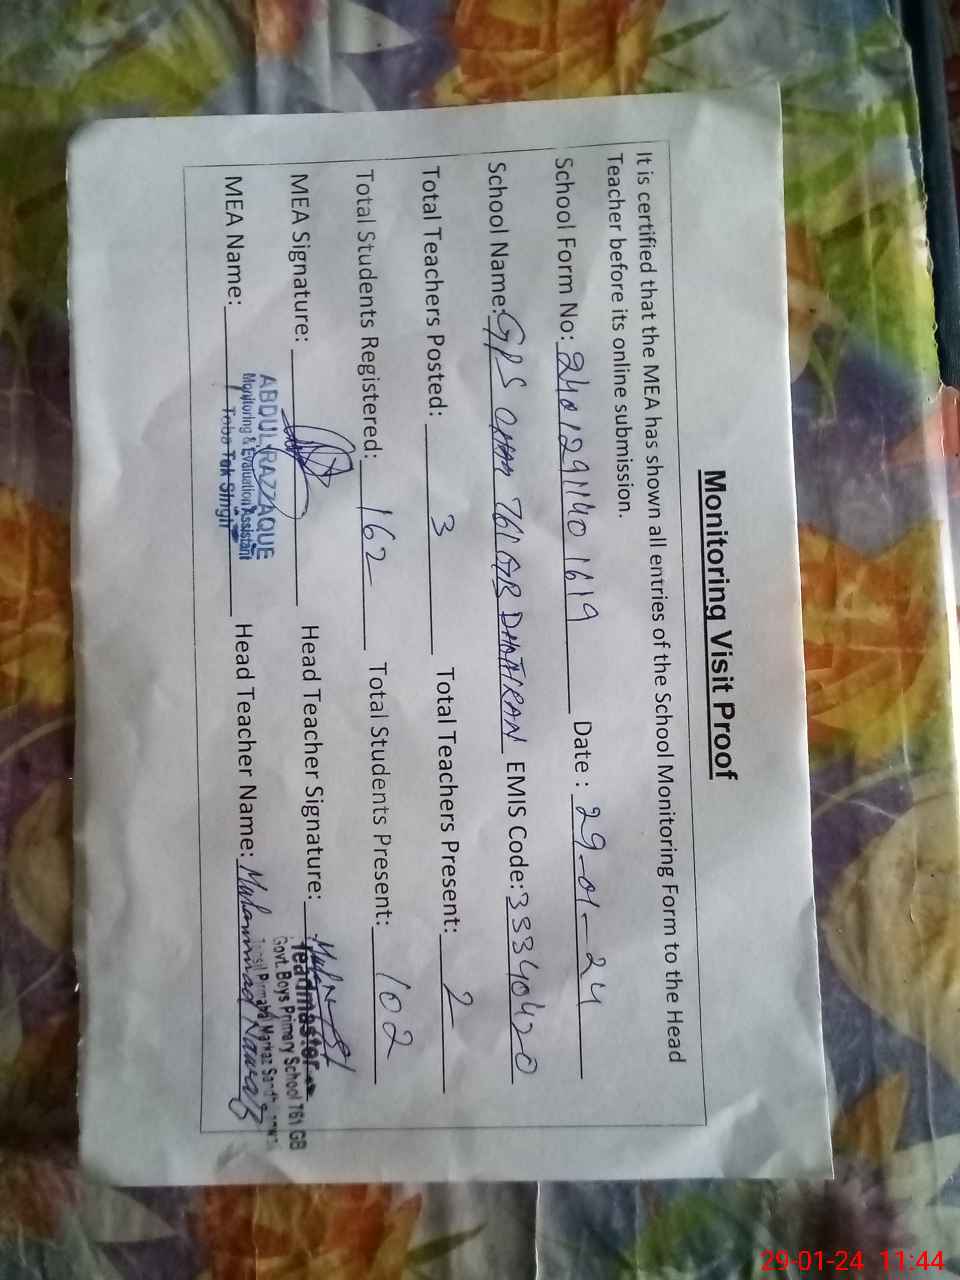 Monitoring Visit Proof
It is certified that the MEA has shown all entries of the School Monitoring Form to the Head
Teacher before its online submission.
School Form No: 2401291140 1619 Date : 29-01-24
School Name: GPS CHAK 761 GB DHOTRAN EMIS Code: 33340420
Total Teachers Posted: 3 Total Teachers Present: 2
Total Students Registered: 162 Total Students Present: 102
MEA Signature: Head Teacher Signature:
Headmaster
Govt. Boys Primary School 761 GB
Markaz
ABDUL RAZZAQUE
Monitoring & Evaluation Assistant
Toba Tek Singh
MEA Name: Head Teacher Name: Muhammad Nawaz
29-01-24 11:44